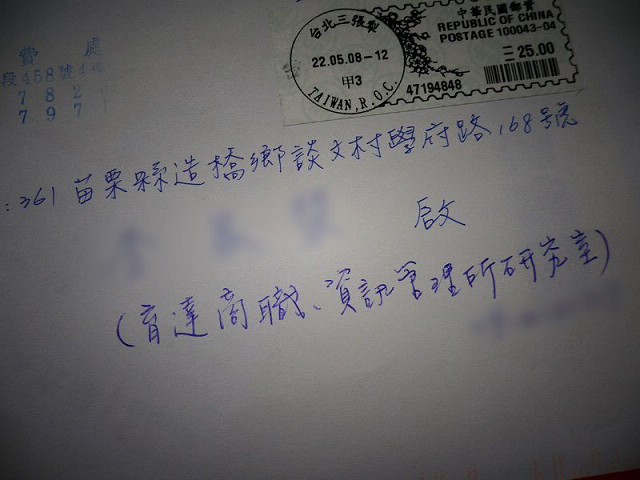 費 處
段458號4樓
782
797
台北三張犁
22.05.08-12
甲3
TAIWAN,R.O.C.
中華民國郵資
REPUBLIC OF CHINA
POSTAGE 100043-04
25.00
47194848
:361 苗栗縣造橋鄉談文村學府路168號
啟
(育達商職、資訊管理所研究室)